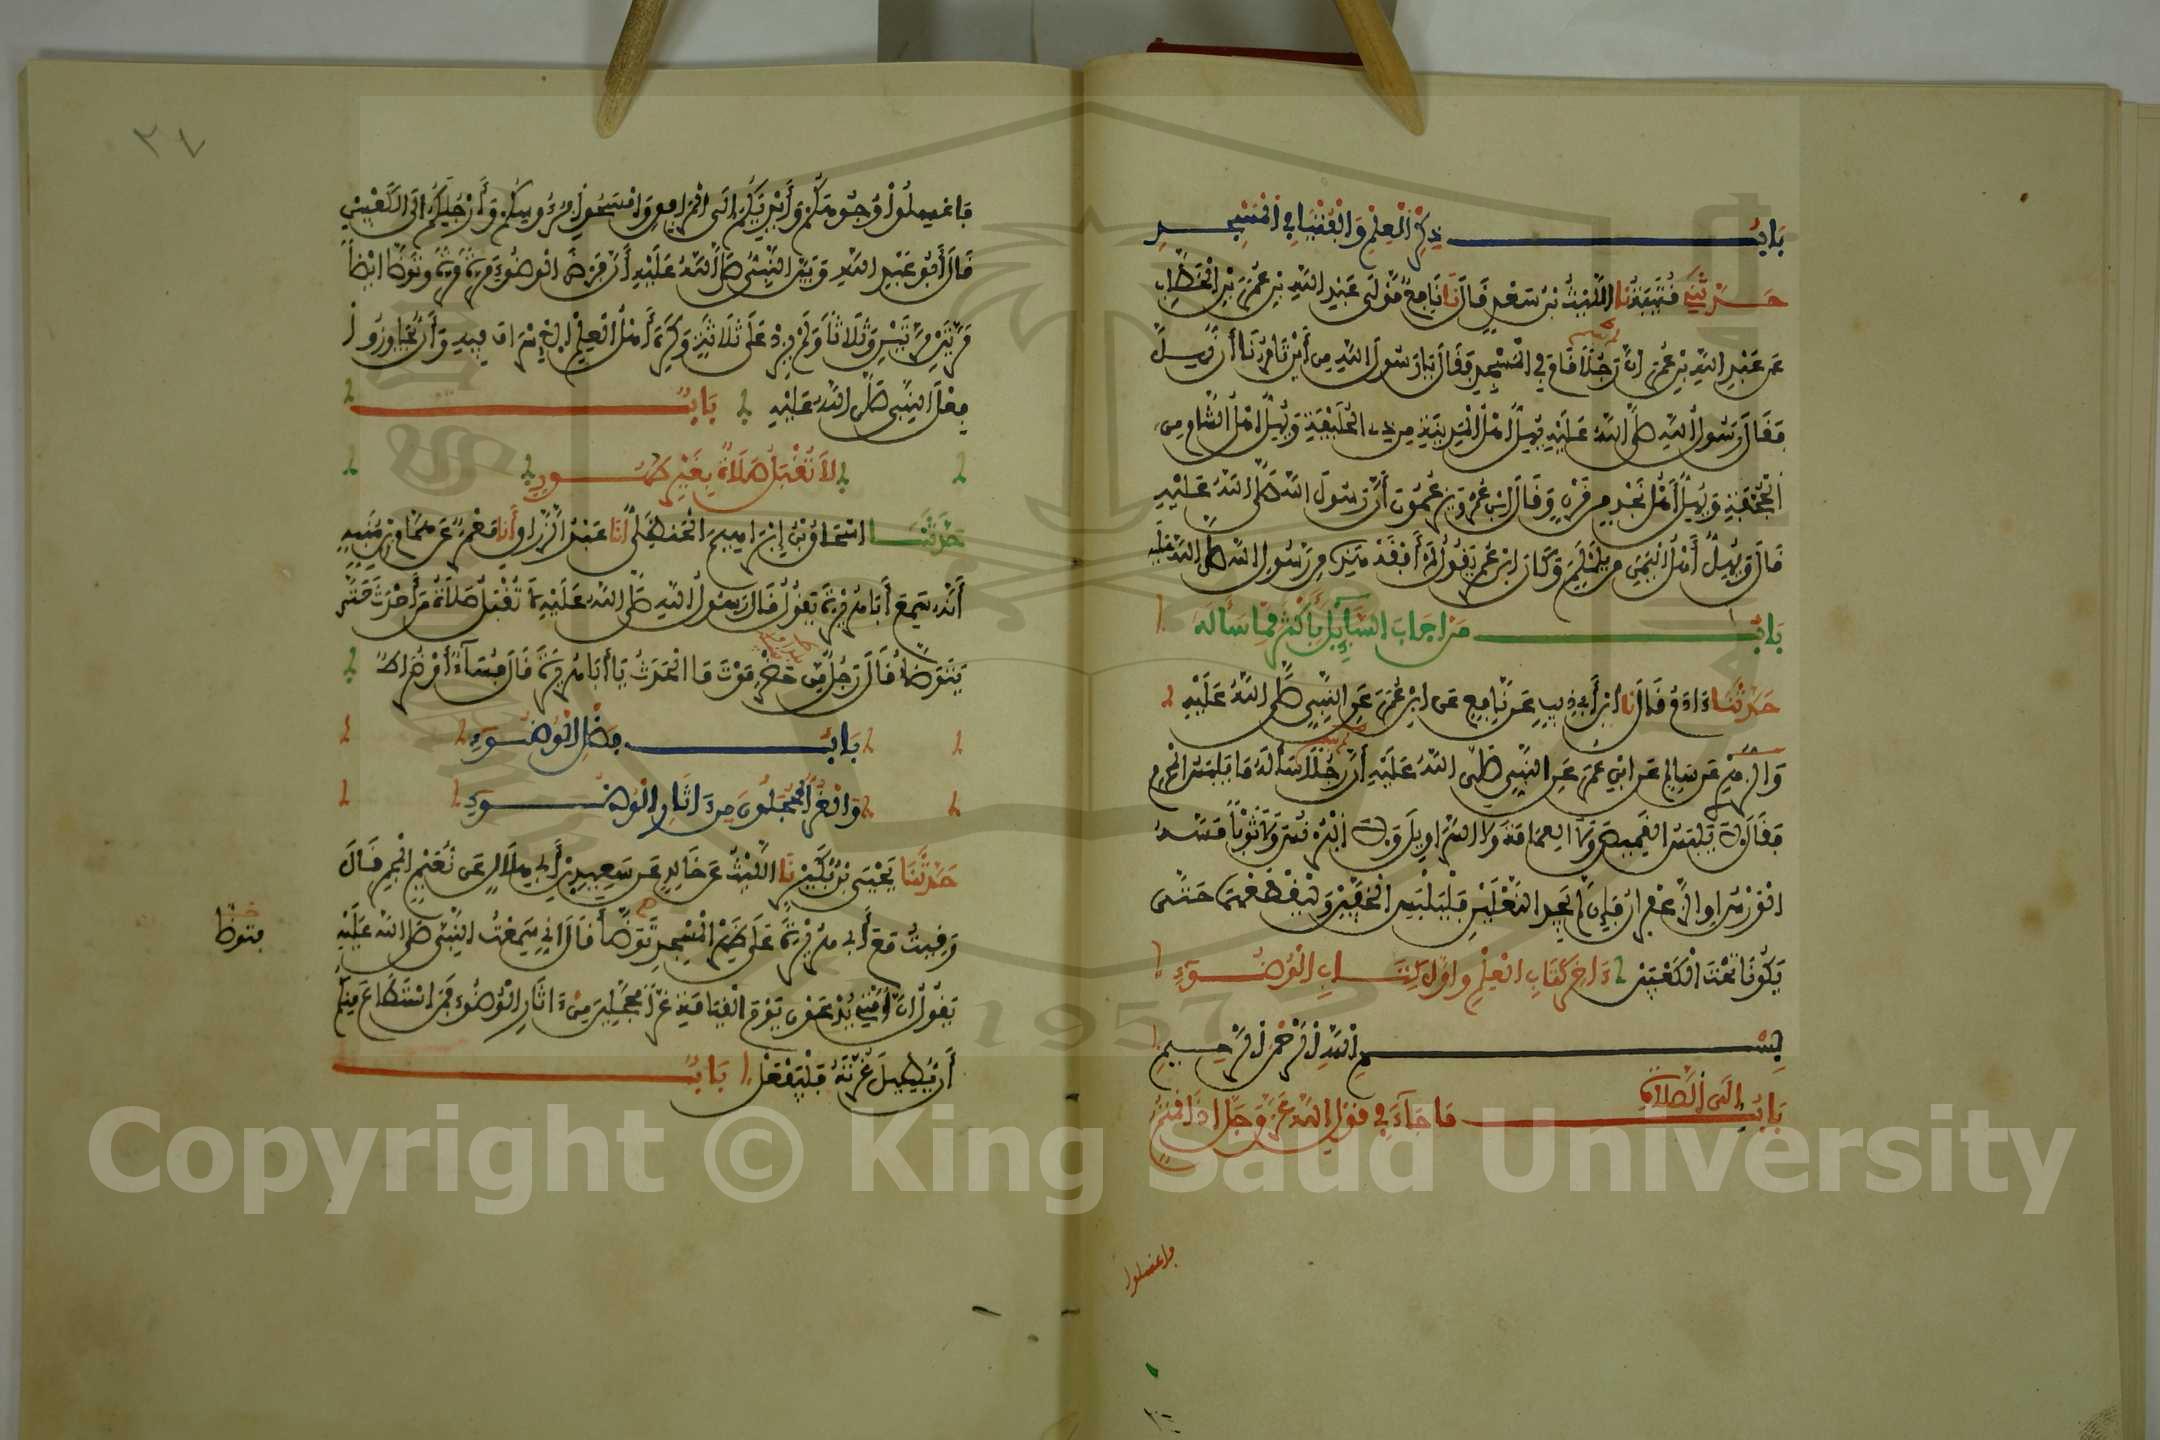 باب ذكر العلم والفتيا في المسجد
حدثني قتيبة نا الليث بن سعد قال نا نافع مولى عبد الله بن عمر بن الخطاب
عن عبد الله بن عمر ان رجلا قام في المسجد فقال يا رسول الله من أين تامرنا أن نهل
فقال رسول الله صلى الله عليه يهل أهل المدينة من ذي الحليفة ويهل اهل الشام من
الجحفة ويهل أهل نجد من قرن وقال ابن عمر ويزعمون أن رسول الله صلى الله عليه
قال ويهل أهل اليمن من يلملم وكان ابن عمر يقول لم أفقه هذه من رسول الله صلى الله عليه
باب من اجاب السايل بأكثر مما سأله
حدثنا ءادم قال نا ابن أبي ذيب عن نافع عن ابن عمر عن النبي صلى الله عليه
والزهري عن سالم عن ابن عمر عن النبي صلى الله عليه أن رجلا سأله ما يلبس المحرم
فقال لا يلبس القميص ولا العمامة ولا السراويل ولا البرنس ولا ثوبا مسه
الورس او الزعفران فإن لم يجد النعلين فليلبس الخفين وليقطعهما حتى
يكونا تحت الكعبين ءاخر كتاب العلم واول كتاب الوضوء
بسم الله الرحمن الرحيم
باب ما جاء في قول الله عز وجل اذا قمتم
إلى الصلاة
فاغسلوا
٣٧
فاغسلوا وجوهكم وأيديكم إلى المرافق وامسحوا برءوسكم وأرجلكم الى الكعبين
قال أبو عبد الله وبين النبي صلى الله عليه أن فرض الوضوء مرة مرة وتوضأ ايضا
مرتين مرتين وثلاثا ولم يزد على ثلاث وكره أهل العلم الاسراف فيه وأن يجاوزوا
فعل النبي صلى الله عليه باب
لا تقبل صلاة بغير طهور
حدثنا اسحاق بن إبراهيم الحنظلي انا عبد الرزاق أنا معمر عن همام بن منبه
أنه سمع أبا هريرة يقول قال رسول الله صلى الله عليه لا تقبل صلاة من أحدث حتى
يتوضأ قال رجل من حضرموت ما الحدث يا أبا هريرة قال فساء أو ضراط
باب فضل الوضوء
والغر المحجلون من ءاثار الوضوء
حدثنا يحيى بن بكير نا الليث عن خالد عن سعيد بن أبي هلال عن نعيم المجمر قال
رقيت مع أبي هريرة على ظهر المسجد توضأ قال اني سمعت النبي صلى الله عليه
يقول ان أمتي يدعون يوم القيامة غرا محجلين من ءاثار الوضوء فمن استطاع منكم
أن يطيل غرته فليفعل باب
فتوضأ
1957
Copyright © King Saud University